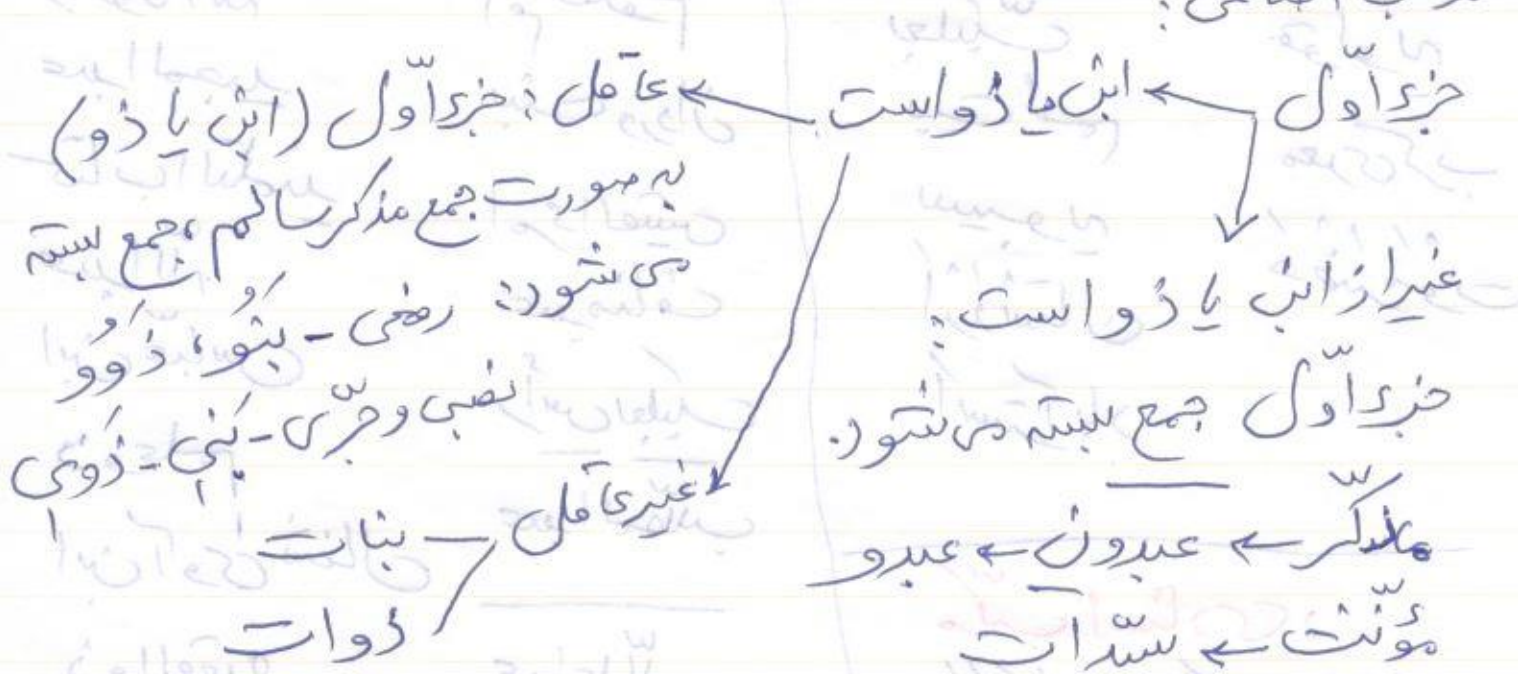 جزء اوّل ← ابن یا ذو است ← عاقل: جزء اوّل (ابن یا ذو)
به صورت جمع مذکر سالم، جمع بسته
می شود: رفعی - بَنُو، ذَوُو
نصبی و جرّی - بَنِي - ذَوِي
غیرعاقل - بنات
ذوات
غیر از ابن یا ذو است:
جزء اوّل جمع بسته می شود.
مذکّر ← عبدون ← عبدو
مؤنّث ← سیّدات